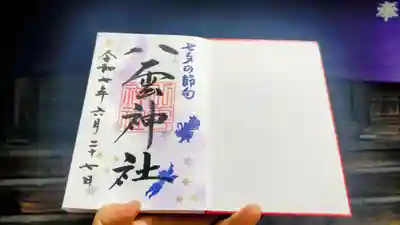 七夕の節句
八雲神社
令和七年六月二十七日